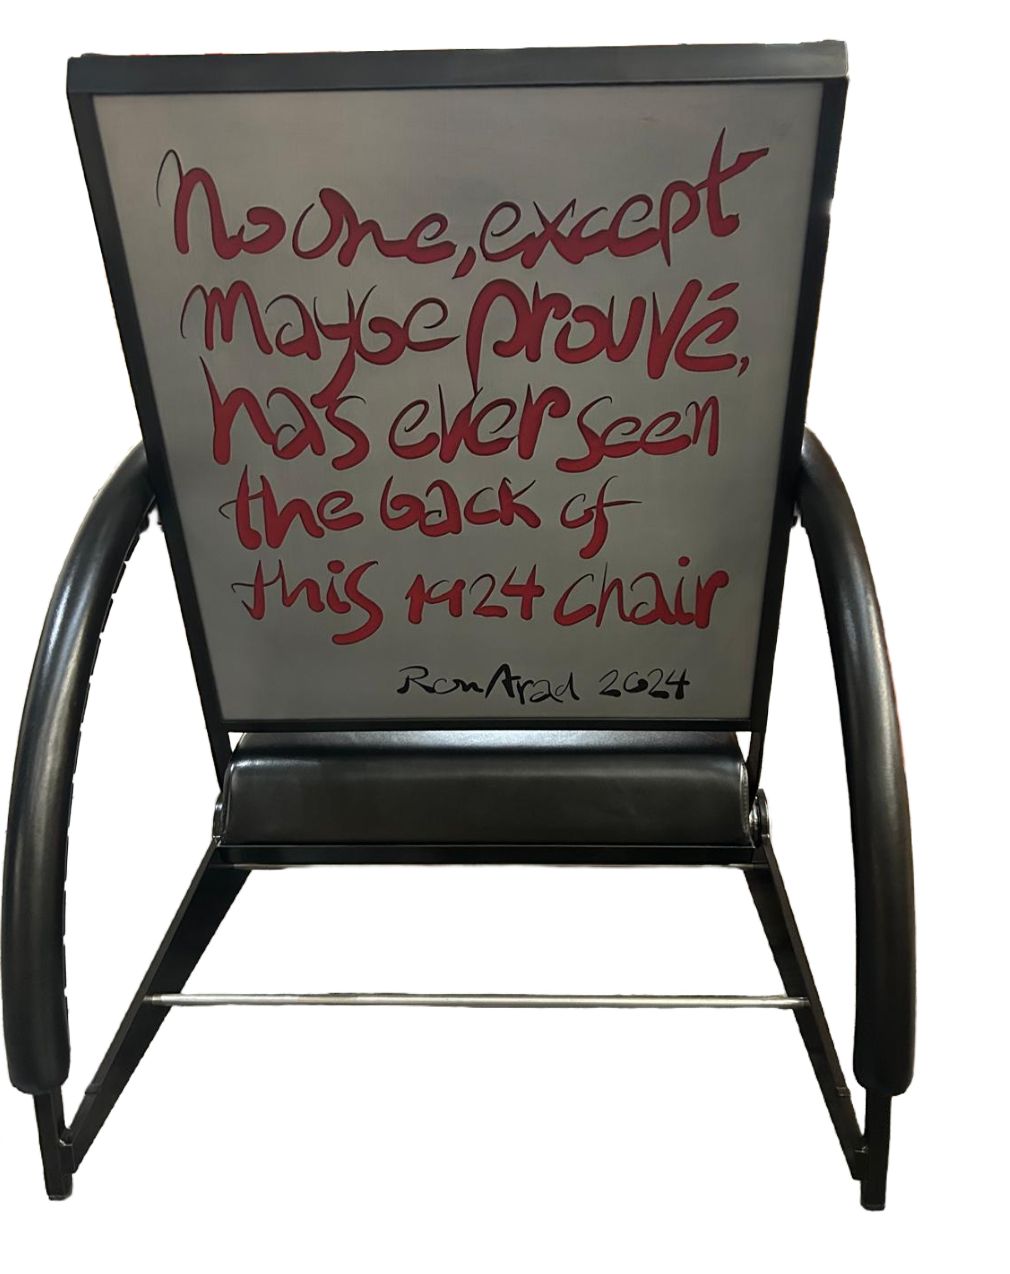 No one, except
maybe prouvé,
has ever seen
the back of
this 1924 chair
Ron Arad 2024